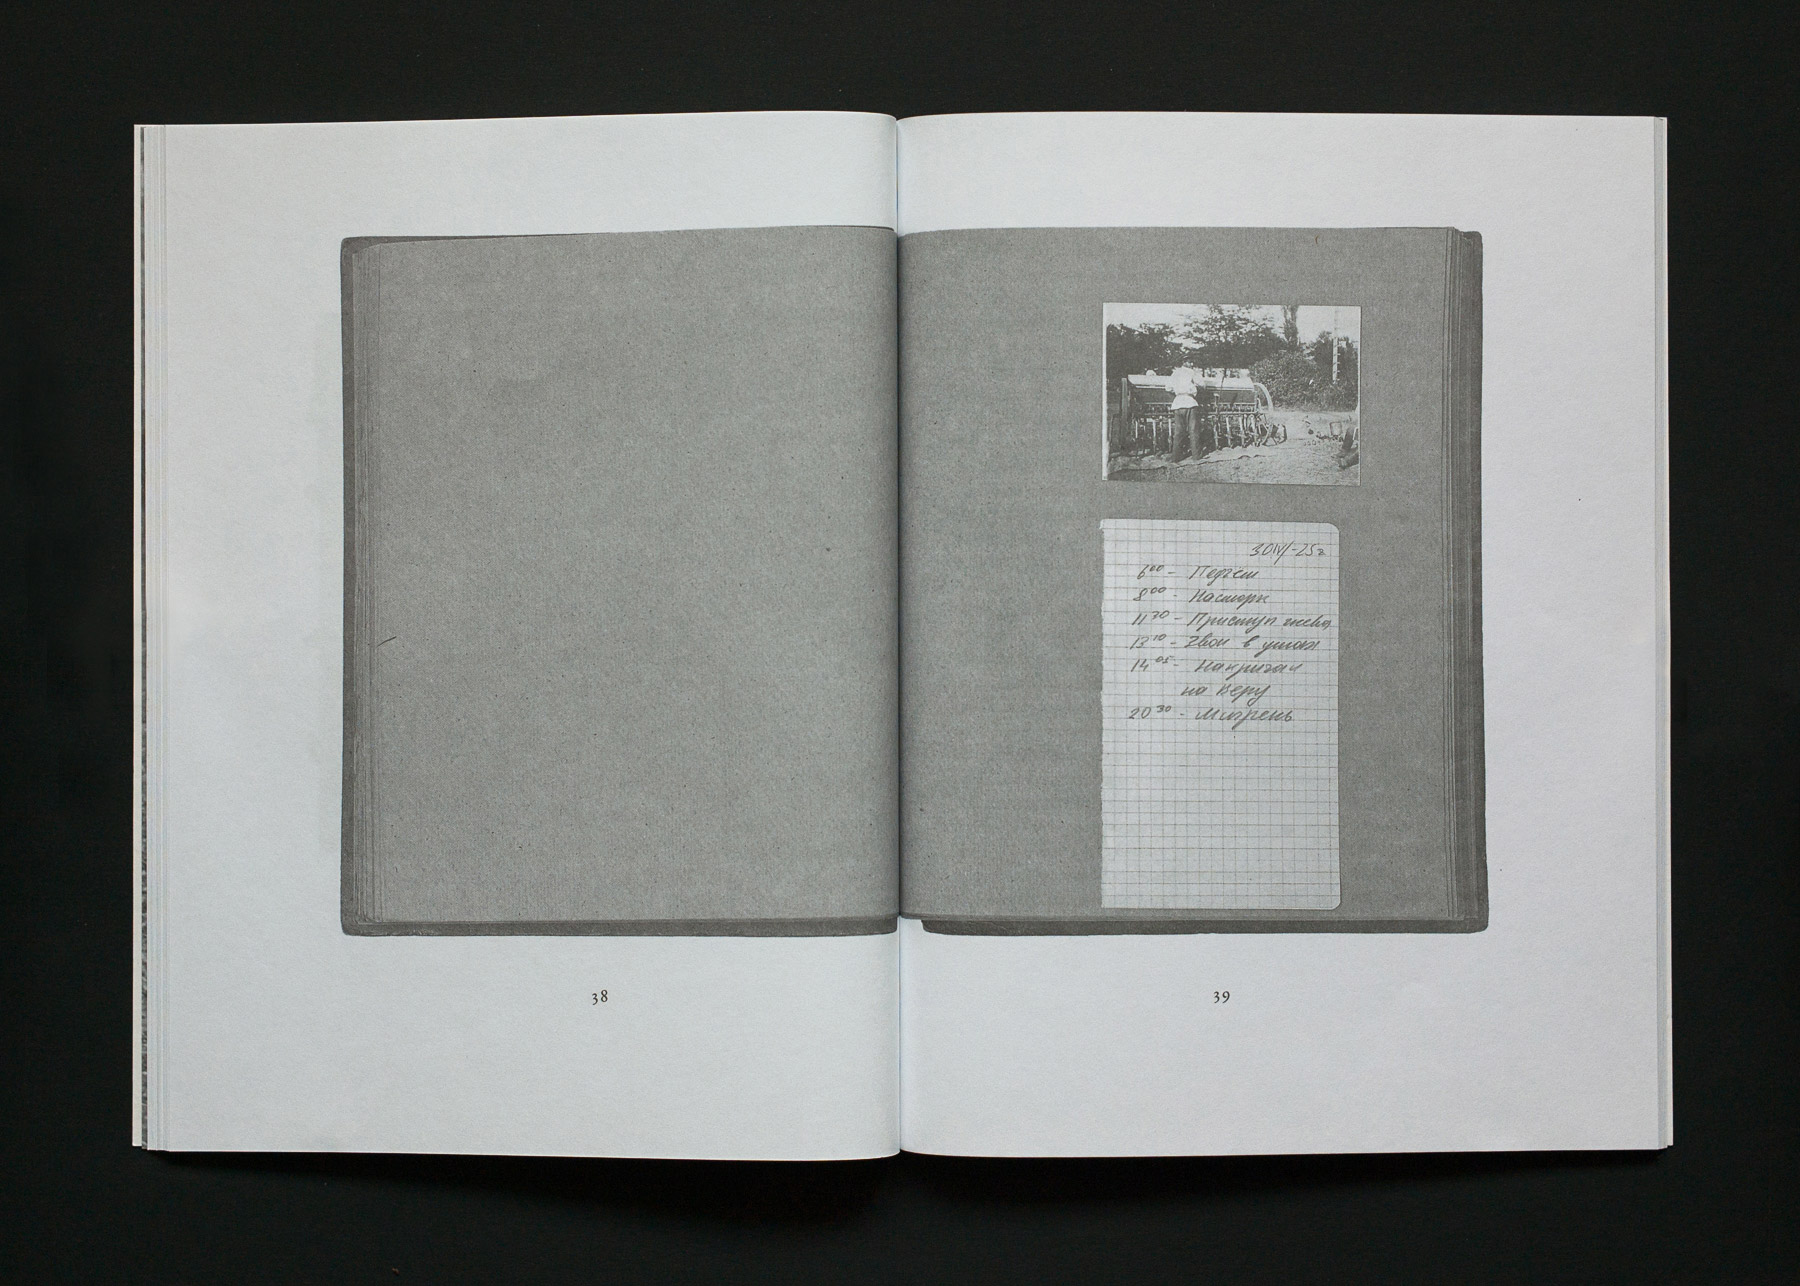 30/IV-25г
6⁰⁰ - Подъем
8⁰⁰ - Насморк
11²⁰ - Приступ гнева
13¹⁰ - Звон в ушах
14⁰⁵ - Накричал
на Веру
20³⁰ - Мигрень
38
39